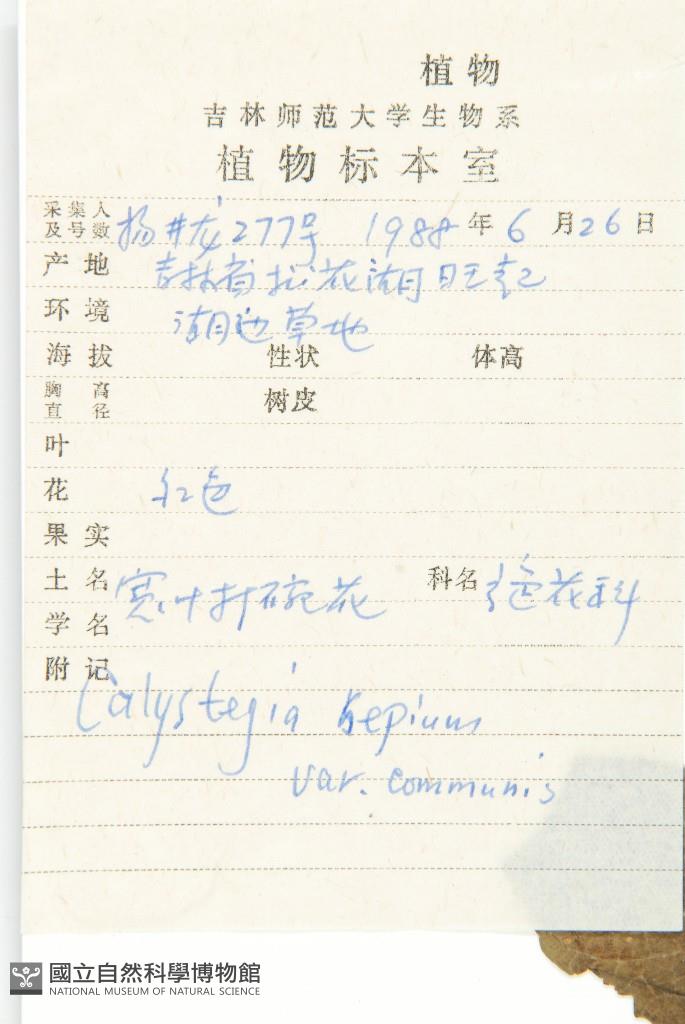 植物
吉林师范大学生物系
植物标本室
采集人及号数 杨井龙 277号 1988年6月26日
产地 吉林省松花湖旺起
环境 湖边草地
海拔 性状 体高
胸高直径 树皮
叶
花 红色
果实
土名 宽叶打碗花 科名 旋花科
学名
附记
Calystegia sepium
var. communis
國立自然科學博物館
NATIONAL MUSEUM OF NATURAL SCIENCE